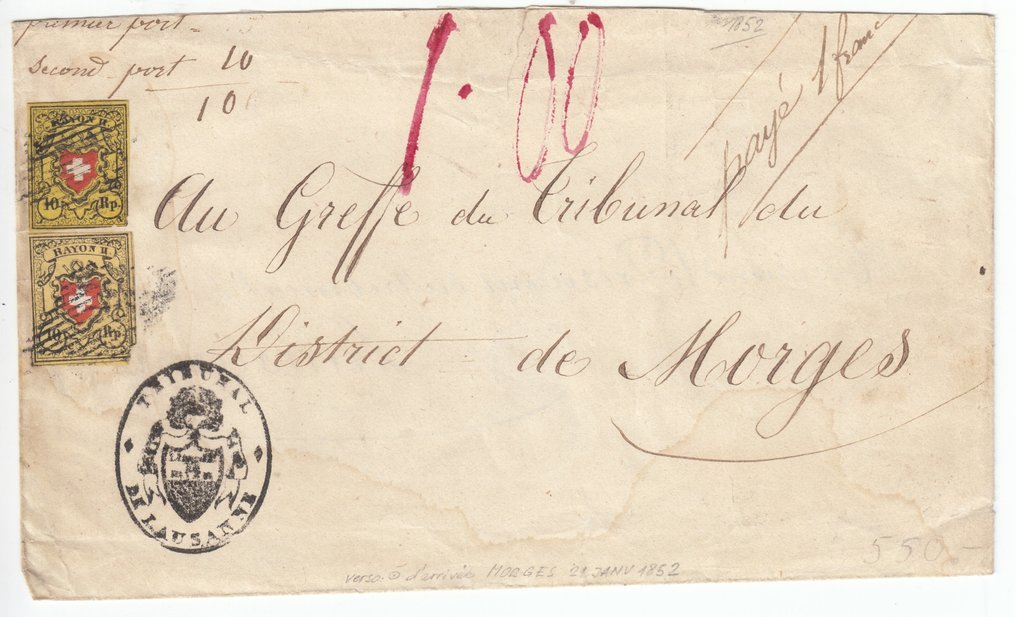 premier port -
second port 10
10
1.00
1852
payé 1 franc
RAYON II
10 Rp.
RAYON II
10 Rp.
Au Greffe du Tribunal du
District de Morges
TRIBUNAL
DE LAUSANNE
550.-
verso: d'arrivée MORGES 21 JANV 1852